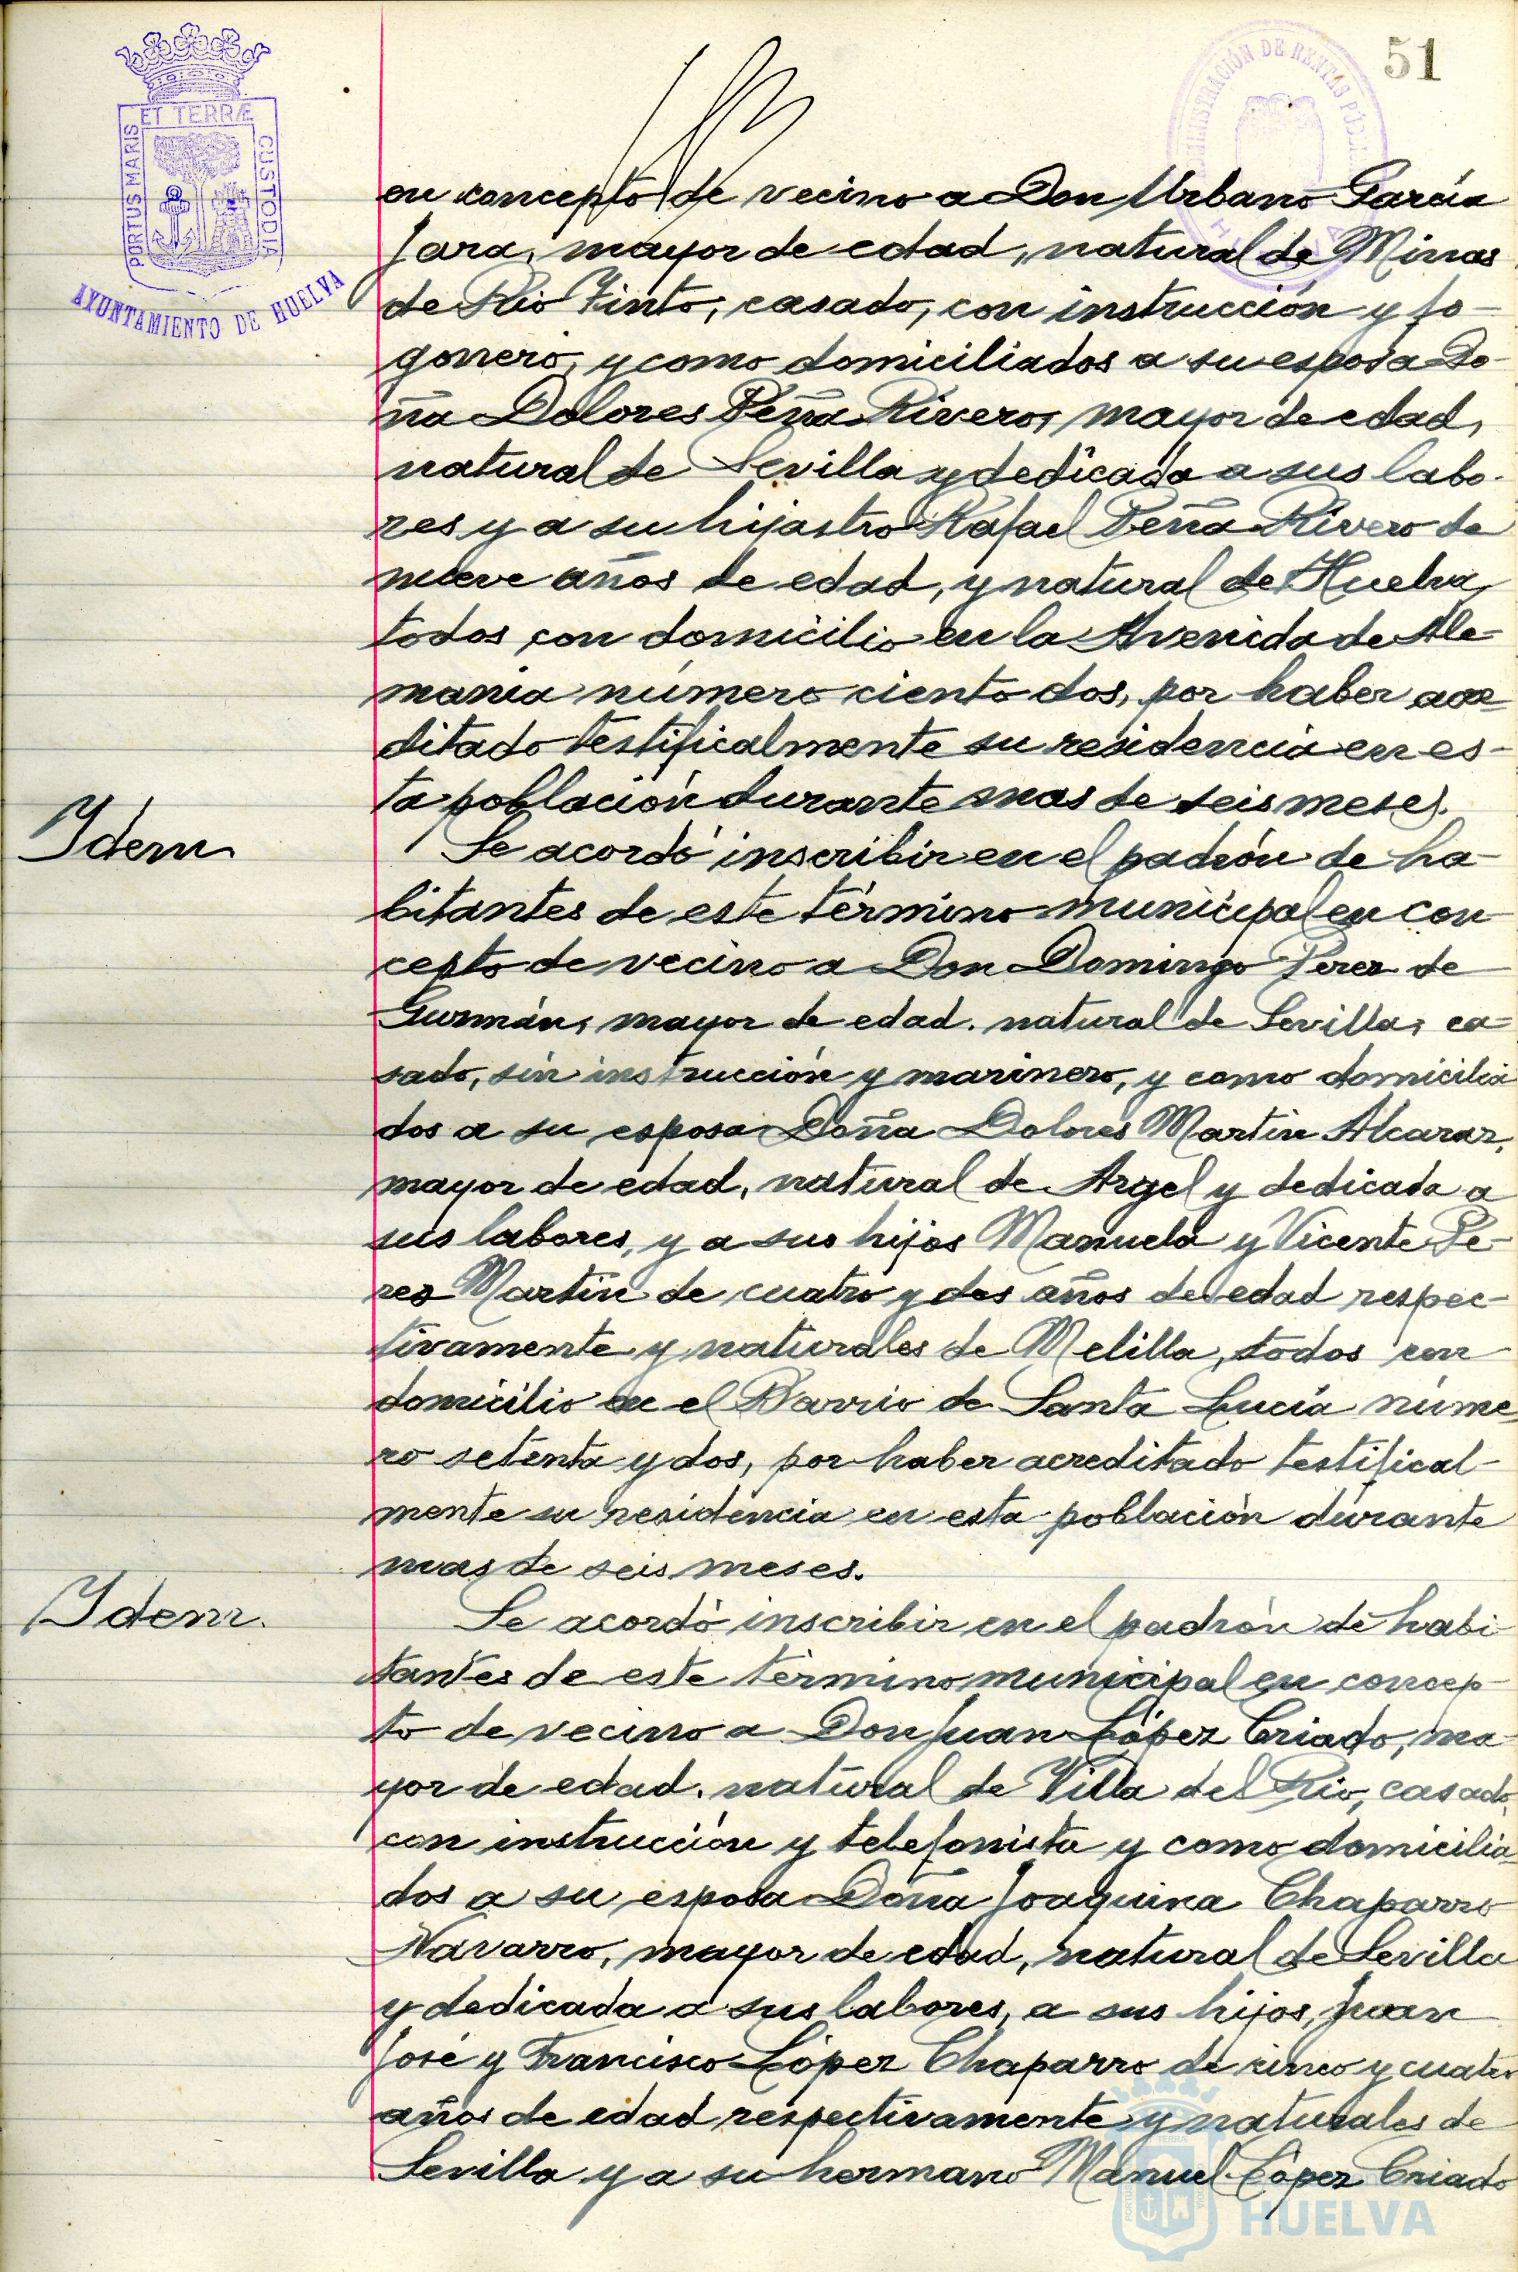 51
ET TERRÆ
PORTUS MARIS
CUSTODIA
AYUNTAMIENTO DE HUELVA
ADMINISTRACIÓN DE RENTAS PÚBLICAS
en concepto de vecino a Don Urbano García
Jara, mayor de edad, natural de Minas
de Rio Tinto, casado, con instrucción y fo-
gonero, y como domiciliados a su esposa Do-
ña Dolores Peña Rivero, mayor de edad,
natural de Sevilla y dedicada a sus labo-
res y a su hijastro Rafael Peña Rivero de
nueve años de edad, y natural de Huelva,
todos con domicilio en la Avenida de Ale-
mania número ciento dos, por haber acre-
ditado testificalmente su residencia en es-
ta población durante mas de seis meses.
Idem
Se acordó inscribir en el padrón de ha-
bitantes de este término municipal en con-
cepto de vecino a Don Domingo Perez de
Guzmán, mayor de edad. natural de Sevilla, ca-
sado, sin instrucción y marinero, y como domicilia
dos a su esposa Doña Dolores Martin Alcaraz,
mayor de edad, natural de Argel y dedicada a
sus labores, y a sus hijos Manuela y Vicente Pe-
rez Martin de cuatro y dos años de edad respec-
tivamente y naturales de Melilla, todos con
domicilio en el Barrio de Santa Lucía núme-
ro setenta y dos, por haber acreditado testifical-
mente su residencia en esta población durante
mas de seis meses.
Idem.
Se acordó inscribir en el padrón de habi-
tantes de este término municipal en concep-
to de vecino a Don Juan López Criado, ma-
yor de edad. natural de Villa del Rio, casado,
con instrucción y telefonista y como domicilia-
dos a su esposa Doña Joaquina Chaparro
Navarro, mayor de edad, natural de Sevilla
y dedicada a sus labores, a sus hijos, Juan
José y Francisco López Chaparro de cinco y cuatro
años de edad respectivamente y naturales de
Sevilla y a su hermano Manuel López Criado
HUELVA